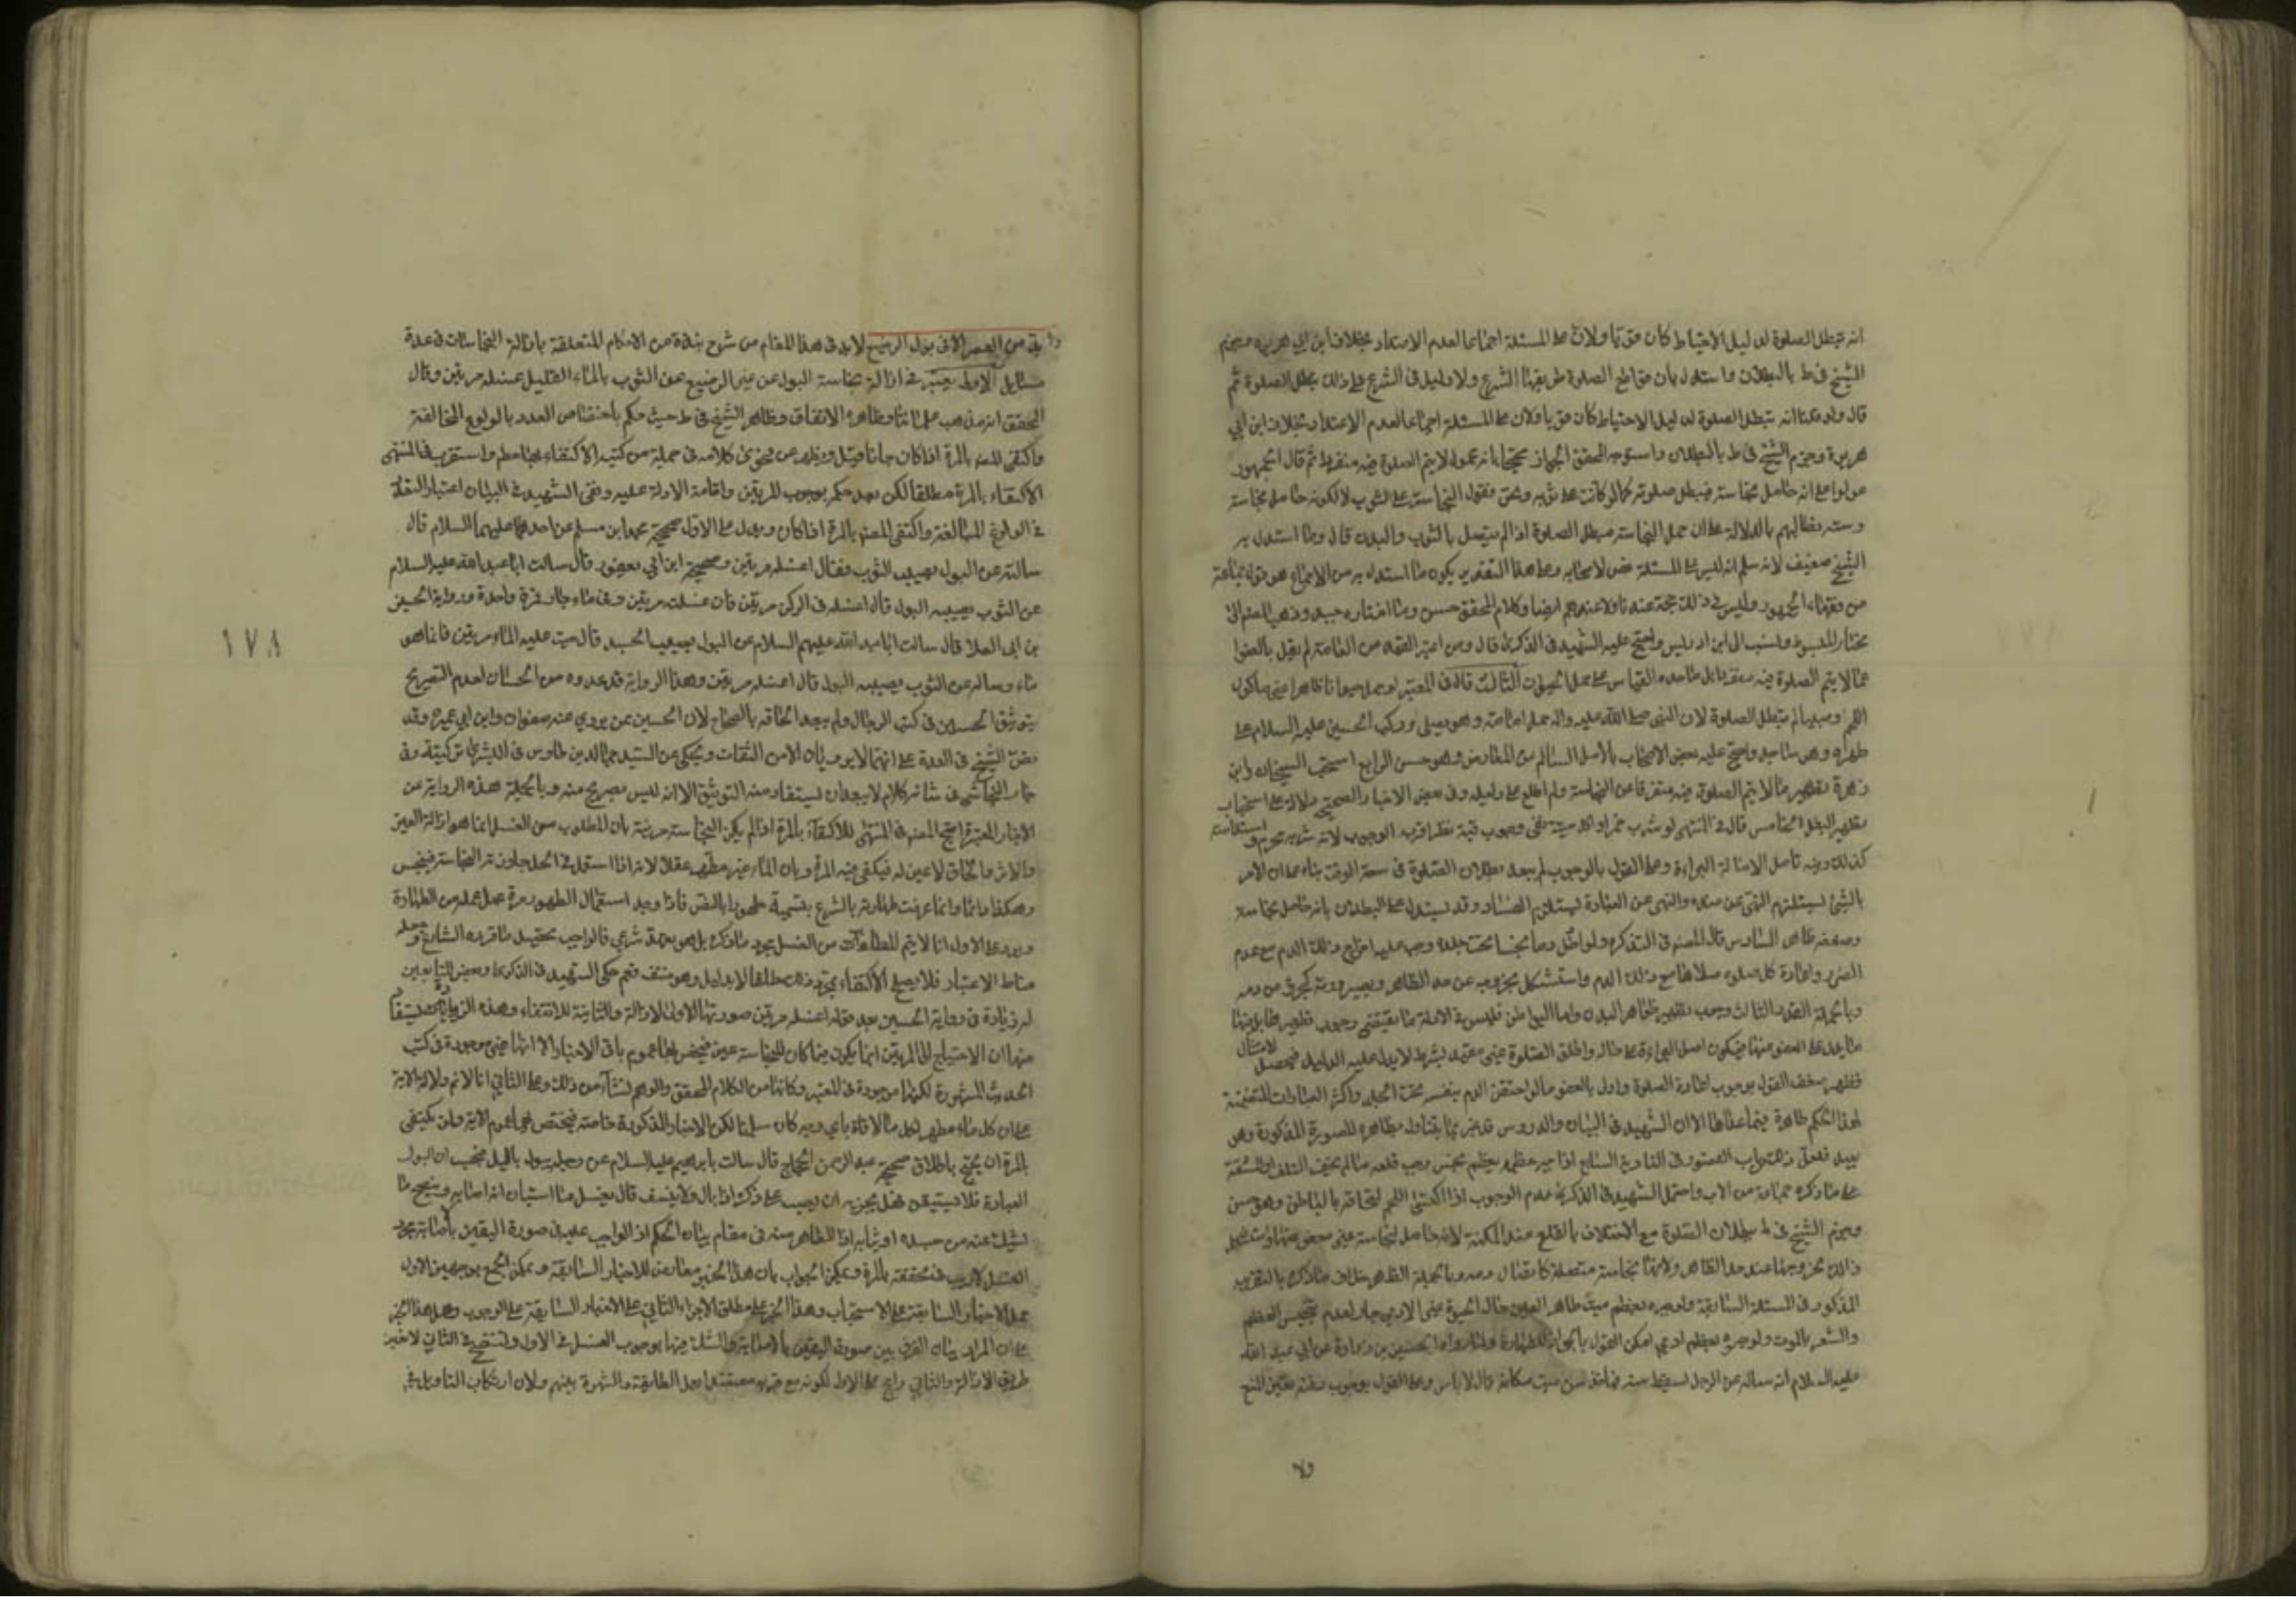 انه تبطل الصلوة لدليل الاحتياط كان قويا ولان على المسئلة اجماعا لعدم الاعتداد بخلاف ابن ابي هريرة وجزم
الشيخ في ط بالبطلان واستدل بان قواطع الصلوة طريقها الشرع ولا دليل في الشرع على ذلك يبطل الصلوة ثم
قال ولو قلنا انه تبطل الصلوة لدليل الاحتياط كان قويا ولان على المسئلة اجماعا لعدم الاعتداد بخلاف ابن ابي
هريرة وجزم الشيخ في ط بالبطلان واستوجه المحقق الجواز محتجا بانه محمول لا يتم الصلوة فيه منفردا ثم قال الجمهور
عولوا على انه حامل نجاسة فيبطل صلوته كما لو كانت على ثوبه ونحن نقول النجاسة على الثوب لا لكونه حامل نجاسة
ونطالبهم بالدلالة على ان حمل النجاسة مبطل الصلوة اذا لم يتصل بالثوب والبدن قال وما استدل به
الشيخ ضعيف لانه سلم انه ليس على المسئلة نص لاصحابه وعلى هذا التقدير يكون ما استدل به من الاجماع هو قول جماعة
من فقهاء الجمهور وليس في ذلك حجة عندنا ولا عندهم ايضا وكلام المحقق حسن وما اختاره جيد وذهب المصنف الى
مختار المبسوط ونسب الى ابن ادريس واحتج عليه الشهيد في الذكرى قال ومن اعتبر الفقه من العامة لم يقل بالعفو
عما لا يتم الصلوة فيه الثالث قال في المعتبر لو حمل حيوانا طاهرا غير ماكول
اللحم او صبيا لم تبطل الصلوة لان النبي صلى الله عليه واله حمل امامة وهو يصلي وركب الحسين عليه السلام على
ظهره وهو ساجد واحتج عليه بعض الاصحاب بالاصل السالم من المعارض وهو حسن الرابع استحب الشيخان وابن
زهرة تطهير ما لا يتم الصلوة فيه منفردا من النجاسة ولم اطلع على دليله وفي بعض الاخبار الصحيحة دلالة على استحباب
تطهير النعل الخامس قال في المنتهى لو شرب خمرا او اكل ميتة ففي وجوب قيئه نظر اقربه الوجوب لانه شربه محرم واستدامته
كذلك وفيه تامل لاصالة البراءة وعلى القول بالوجوب لم يبعد بطلان الصلوة في سعة الوقت بناء على ان الامر
بالشيء يستلزم النهي عن ضده والنهي عن العبادة يستلزم الفساد وقد يستدل على البطلان بانه حامل نجاسة
وضعفه ظاهر السادس قال المصنف في التذكرة ولو ادخل دما نجسا تحت جلده وجب عليه اخراج ذلك الدم مع عدم
الضرر واعادة كل صلوة صلاها مع ذلك الدم واستشكل بخروجه عن حد الظاهر وبصيرورته كجزء من دمه
وبالجملة القدر الثابت وجوب تطهير ظاهر البدن واما البواطن فليس في الادلة ما يقتضي وجوب تطهيرها
فيكون اصل البراءة على حاله واطلاق الصلوة غير مقيد بشرط لا يدل عليه الدليل فيحصل الامتثال
فظهر ضعف القول بوجوب اعادة الصلوة واولى بالعفو ما لو احتقن الدم بنفسه تحت الجلد واكثر العبارات المتضمنة
لهذا الحكم ظاهرة فيما عداها الا ان الشهيد في البيان والدروس قد عبر بما يتناول بظاهره للصورة المذكورة وهو
بعيد السابع اذا جبر عظمه بعظم نجس وجب قلعه ما لم يخف التلف او المشقة
على ما ذكره جماعة من الاصحاب واحتمل الشهيد في الذكرى عدم الوجوب اذا اكتسى اللحم لالتحاقه بالباطن وهو حسن
وجزم الشيخ في ط ببطلان الصلوة مع الاخلال بالقلع عند المكنة لانه حامل لنجاسة غير معفو عنها
وذلك بخروجها عند حد الظاهر ولانها نجاسة متصلة كاتصال دمه وبالجملة الظاهر خلاف ما ذكره بالتقريب
المذكور في المسئلة السابقة ولو جبره بعظم ميت طاهر العين حال الحيوة غير الادمي جاز لعدم تنجيس العظم
والشعر بالموت ولو جبره بعظم ادمي امكن القول بالجواز للطهارة ولما رواه الحسين بن زرارة عن ابي عبد الله
عليه السلام انه ساله عن الرجل يسقط سنه فياخذ سن ميت مكانه قال لا باس وعلى القول بوجوب دفنه يتعين المنع
ولا
لا بد في هذا المقام من شرح بنذة من الاحكام المتعلقة بازالة النجاسات في عدة
مسايل الاولى يعتبر في ازالة نجاسة البول من غير الرضيع عن الثوب بالماء القليل غسله مرتين وقال
المحقق انه مذهب علمائنا وظاهره الاتفاق وظاهر الشيخ في ط حيث حكم باختصاص العدد بالولوغ المخالفة
واكتفى المصنف بالمرة اذا كان جافا ويظهر من فحوى كلامه في جملة من كتبه الاكتفاء بها مطلقا واستقربه في المنتهى
الاكتفاء بالمرة مطلقا لكن بعد حكمه بوجوب المرتين واقامة الادلة عليه ونفى الشهيد في البيان اعتبار التعدد
ويدل على الاول صحيحة محمد ابن مسلم عن احدهما عليهما السلام قال
سالته عن البول يصيب الثوب فقال اغسله مرتين وصحيحة ابن ابي يعفور قال سالت ابا عبد الله عليه السلام
عن الثوب يصيبه البول قال اغسله في الركن مرتين فان غسلته في ماء جار فمرة واحدة ورواية الحسين
بن ابي العلا قال سالت ابا عبد الله عليهم السلام عن البول يصيب الجسد قال صب عليه الماء مرتين فانما هو
ماء وساله عن الثوب يصيبه البول قال اغسله مرتين وهذه الرواية قد عدوه من الحسان لعدم التصريح
بتوثيق الحسين في كتب الرجال ولم يبعد الحاقه بالصحاح لان الحسين ممن يروي عنه صفوان وابن ابي عمير وقد
نص الشيخ في العدة على انهما لا يرويان الا من الثقات وحكى عن السيد جمال الدين طاوس في البشرى تزكيته وفي
النجاشي في شانه كلام لا يبعد ان يستفاد منه التوثيق الا انه ليس بصريح منه وبالجملة هذه الرواية من
الاخبار المعتبرة احتج المصنف في المنتهى للاكتفاء بالمرة اذا لم يكن النجاسة مرئية بان المطلوب من الغسل انما هو ازالة العين
والاثر وما لا عين له فيكفي فيه المرة وبان الماء غير مطهر عقلا لانه اذا استعمل في المحل جاورته النجاسة فينجس
وهكذا دائما وانما عرفت طهارته بالشرع بتسميته طهورا بالنص فاذا وجد استعمال الطهور مرة عمل عمله من الطهارة
ويرد على الاول انا لا نسلم ان المطلوب من الغسل مجرد ما ذكره بل هو تعبد شرعي فالواجب تحصيل ما قرره الشارع وجعله
مناط الاعتبار فلا يصح الاكتفاء بمجرد ذلك مطلقا الا بدليل وهو منتف نعم حكى الشهيد في الذكرى وبعض التابعين
له زيادة في رواية الحسين بعد قوله اغسله مرتين صورتها الاولى للازالة والثانية للانقاء وهذه الزيادة يستفاد
منها ان الاحتياج الى المرتين انما يكون فيما كان للنجاسة عين فيخص بها عموم باقي الاخبار الا انها غير موجودة في كتب
الحديث المشهورة لكنها موجودة في المعتبر وكانها من الكلام المحقق والوهم نشأ من ذلك وعلى الثاني انا لا نم دلالة الاية
على ان كل ماء مطهر لكل ما لاقاه باي وجه كان سلمنا لكن الاخبار المذكورة خاصة فيختص بها عموم الاية ولمن يكتفى
بالمرة ان يحتج باطلاق صحيحة عبد الرحمن الحجاج قال سالت ابا ابرهيم عليه السلام عن رجل يبول بالليل فيحسب ان البول
اصابه فلا يستيقن فهل يجزيه ان يصب على ذكره اذا بال ولا يتنشف قال يغسل ما استبان انه اصابه وينضح ما
يشك عنه من جسده او ثيابه اذ الظاهر منه في مقام بيان الحكم ان الواجب عليه في صورة اليقين باصابته مجرد
الغسل لا ريب في تحققه بالمرة ويمكن الجواب بان هذا الخبر معارض للاخبار السابقة ويمكن الجمع بوجهين الاول
حمل الاخبار السابقة على الاستحباب وهذا الخبر على مطلق الاجزاء الثاني حمل الاخبار السابقة على الوجوب وحمل هذا الخبر
على ان المراد بيان الفرق بين صورة اليقين بالاصابة والشك فيها بوجوب الغسل في الاول والنضح في الثاني لا غير
طريق الازالة والثاني راجح على الاول لكونه مع قربه معتضدا بعمل الطائفة والشهرة بينهم ولان ارتكاب التاويل في
١٧٨